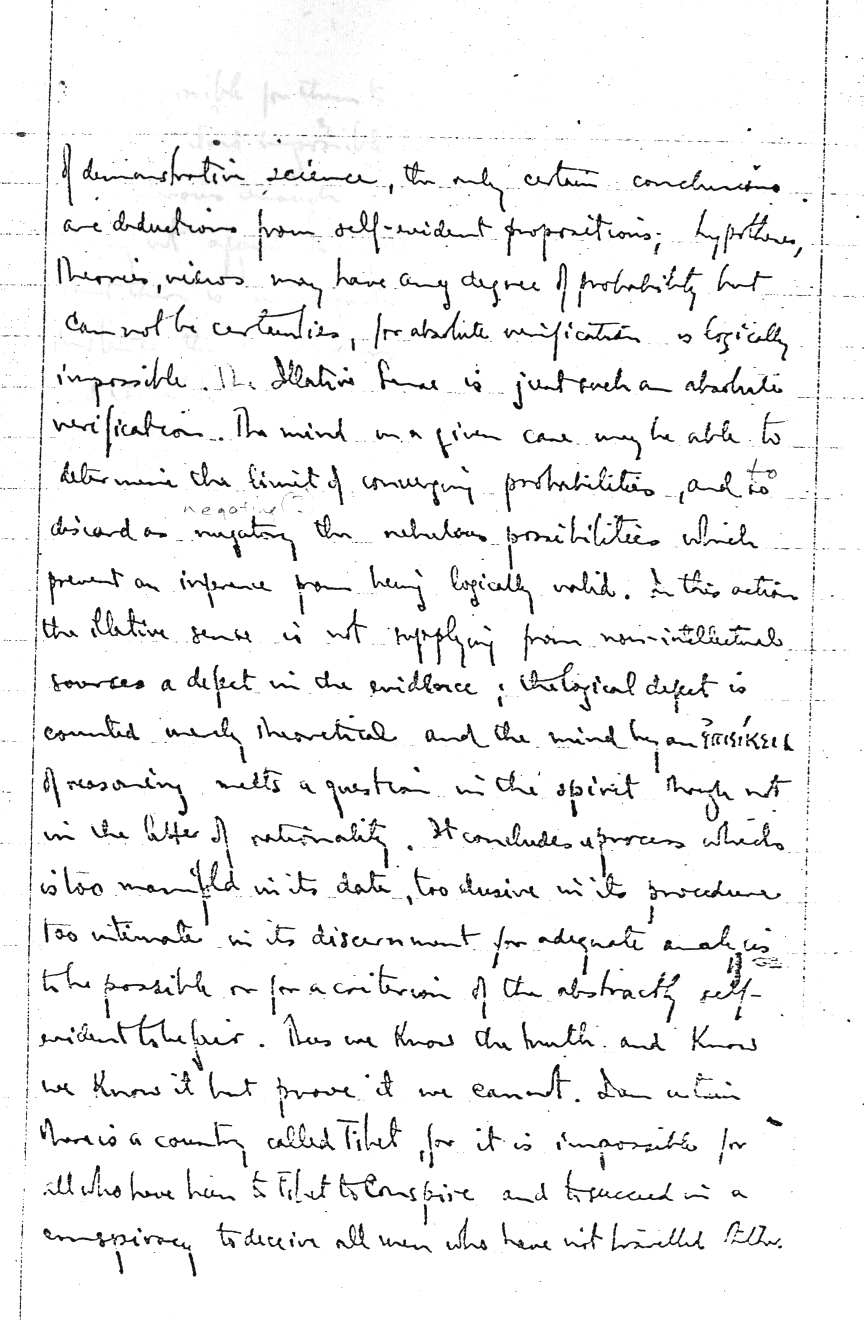 of demonstrative science, the only certain conclusions
are deductions from self-evident propositions; hypotheses,
theories, views may have any degree of probability but
cannot be certainties, for absolute verification is logically
impossible. The Illative Sense is just such an absolute
verification. The mind in a given case may be able to
to
determine the limit of converging probabilities, and so
negative
discard as nugatory the nebulous possibilities which
prevent an inference from being logically valid. In this action
the illative sense is not supplying from non-intellectual
sources a defect in the evidence; the logical defect is
counted merely theoretical and the mind by an ἐπιείκεια
of reasoning melts a question in the spirit though not
in the letter of rationality. It concludes a process which
is too manifold in its data, too elusive in its procedure
too intimate in its discernment for adequate analysis
to be possible or for a criterion of the abstractly self-
evident to be fair. Thus we know the truth and know
we know it but prove it we cannot. I am certain
there is a country called Tibet, for it is impossible for
all who have been to Tibet to conspire and to succeed in a
conspiracy to deceive all men who have not travelled thither.